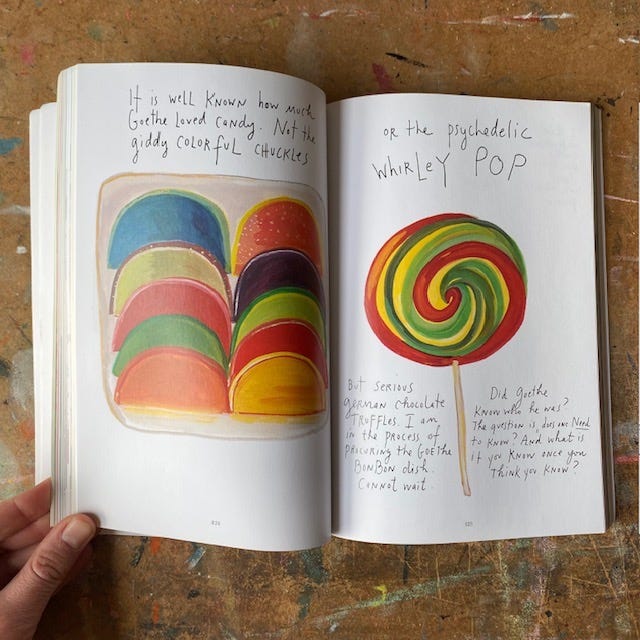 It is well known how much
Goethe loved candy. Not the
giddy COLORFUL CHUCKLES
or the psychedelic
WHIRLEY POP
But serious
german chocolate
TRUFFLES. I am
in the process of
procuring the GOETHE
BONBON dish.
Cannot wait.
Did Goethe
know who he was?
The question is, does one Need
to know? And what is
it you know once you
Think you know?